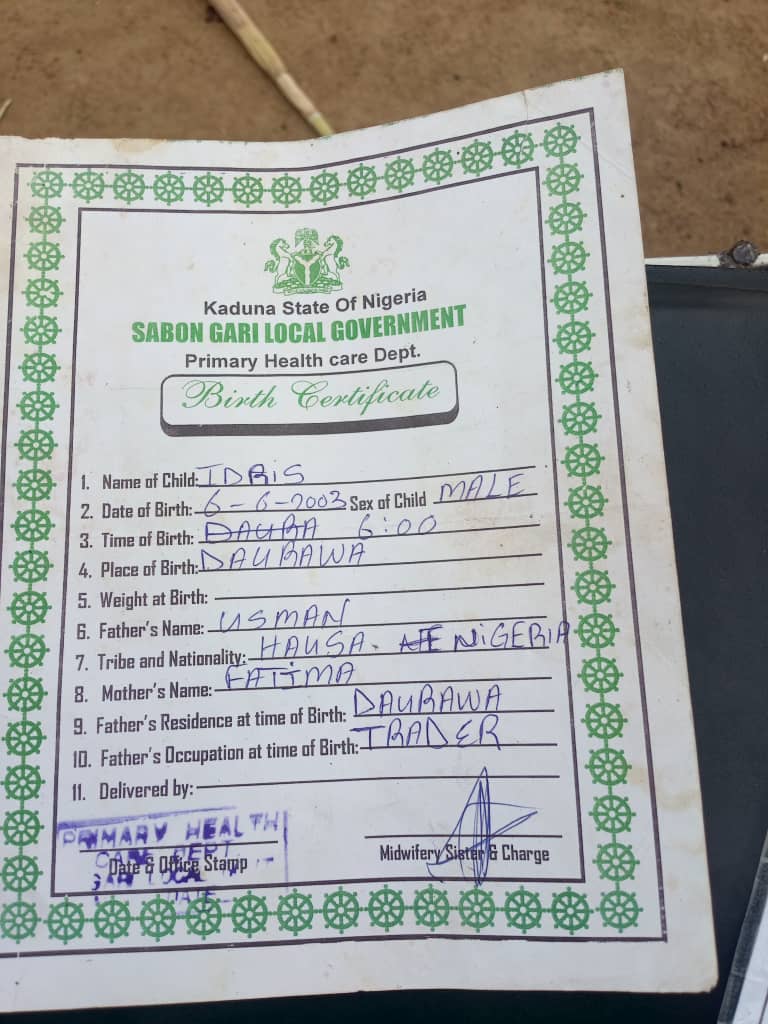 Kaduna State Of Nigeria
SABON GARI LOCAL GOVERNMENT
Primary Health care Dept.
Birth Certificate
1. Name of Child: IDRIS
2. Date of Birth: 6-6-2003 Sex of Child MALE
3. Time of Birth: DAURA 6:00
4. Place of Birth: DAURAWA
5. Weight at Birth:
6. Father's Name: USMAN
7. Tribe and Nationality: HAUSA. NIGERIA
8. Mother's Name: FATIMA
9. Father's Residence at time of Birth: DAURAWA
10. Father's Occupation at time of Birth: TRADER
11. Delivered by:
PRIMARY HEALTH
CARE DEPT
Date & Office Stamp
Midwifery Sister & Charge
GARI LOCAL
DATE